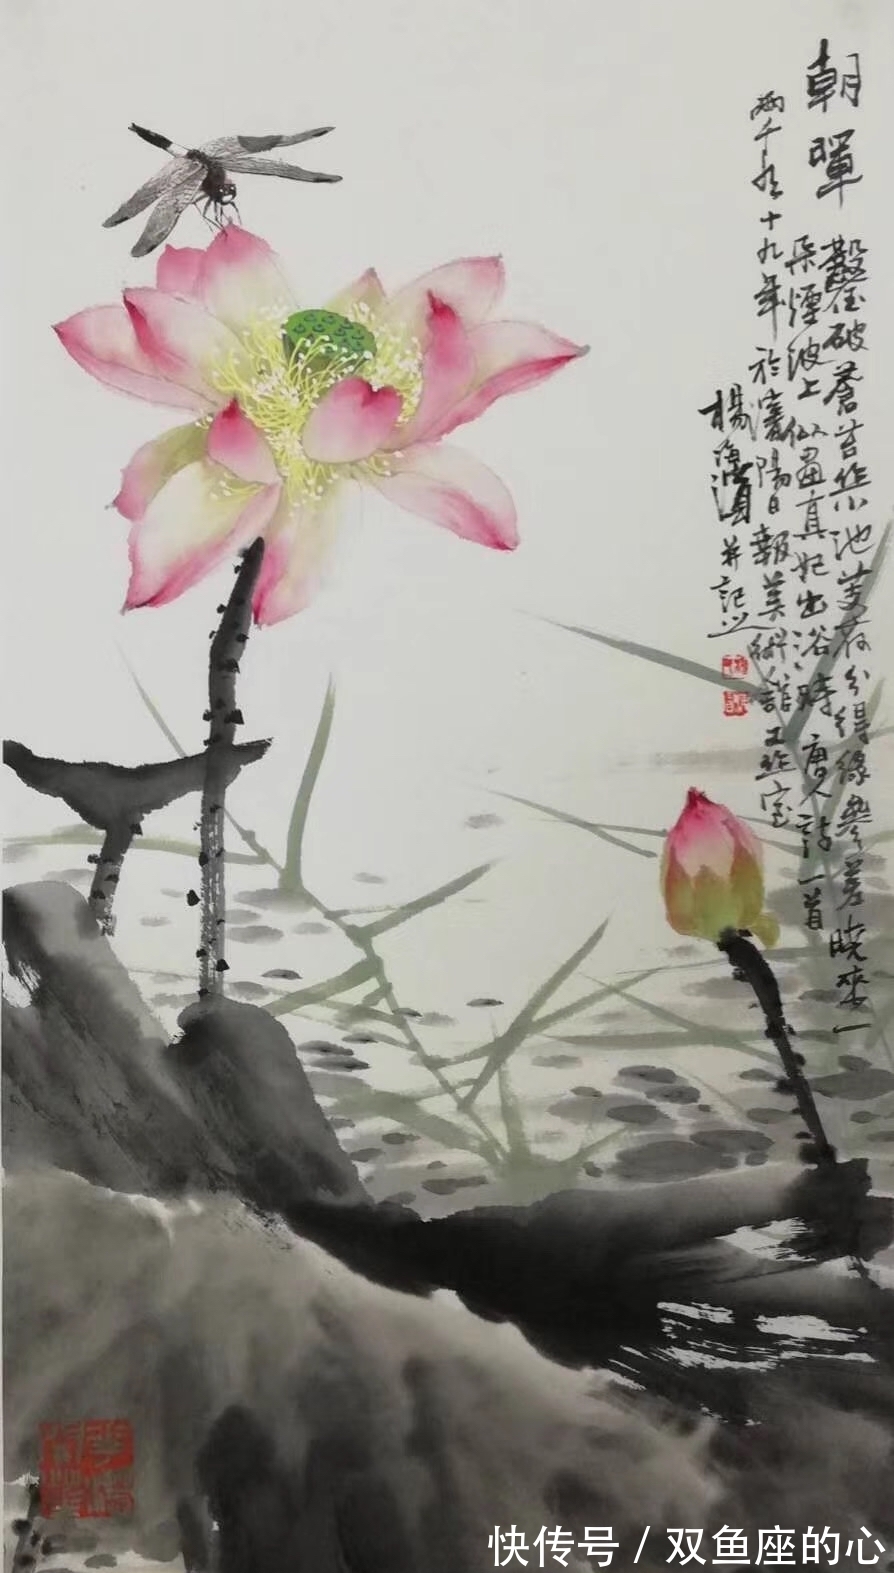 朝暉
鑿破蒼苔作小池芰荷分得綠參差曉來一
朵煙波上似畫真妃出浴時 唐人詩一首
兩千十九年於瀋陽日報美術館工作室
楊海濱并記之
快传号 / 双鱼座的心